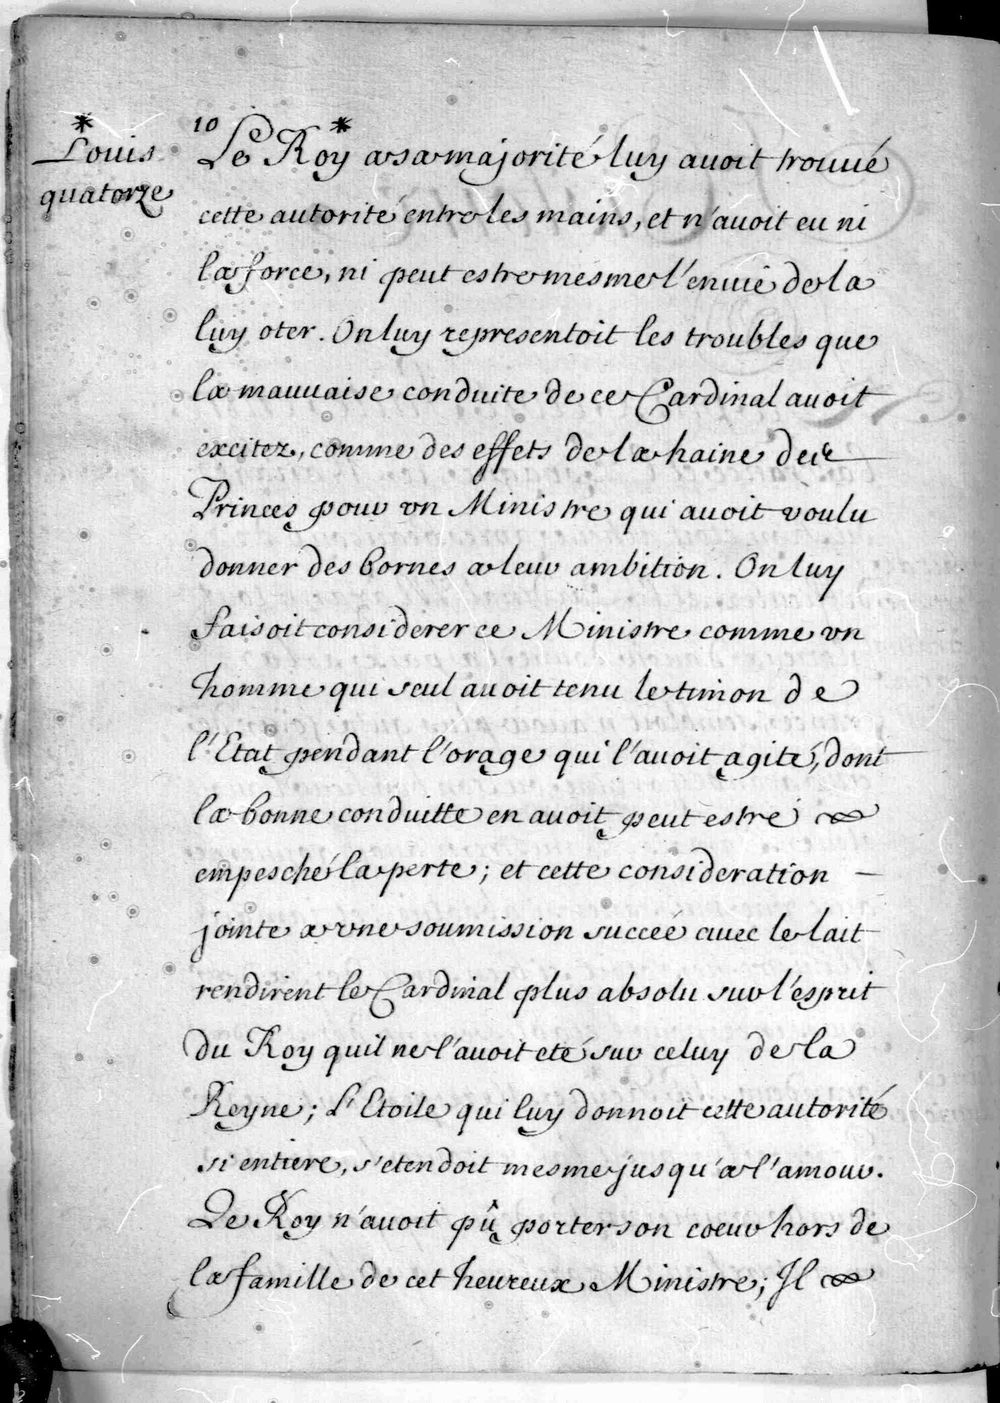 *
Louis
quatorze
10
Le Roy * a sa majorité luy avoit trouvé
cette autorité entre les mains, et n'avoit eu ni
la force, ni peut estre mesme l'envie de la
luy oter. On luy representoit les troubles que
la mauvaise conduite de ce Cardinal avoit
excitez, comme des effets de la haine des
Princes pour un Ministre qui avoit voulu
donner des bornes a leur ambition. On luy
faisoit considerer ce Ministre comme un
homme qui seul avoit tenu le timon de
l'Etat pendant l'orage qui l'avoit agité, dont
la bonne conduitte en avoit peut estre
empesché la perte; et cette consideration
jointe a une soumission succée avec le lait
rendirent le Cardinal plus absolu sur l'esprit
du Roy qu'il ne l'avoit eté sur celuy de la
Reyne; L'Etoile qui luy donnoit cette autorité
si entiere, s'etendoit mesme jusqu'a l'amour.
Le Roy n'avoit pû porter son coeur hors de
la famille de cet heureux Ministre; Il